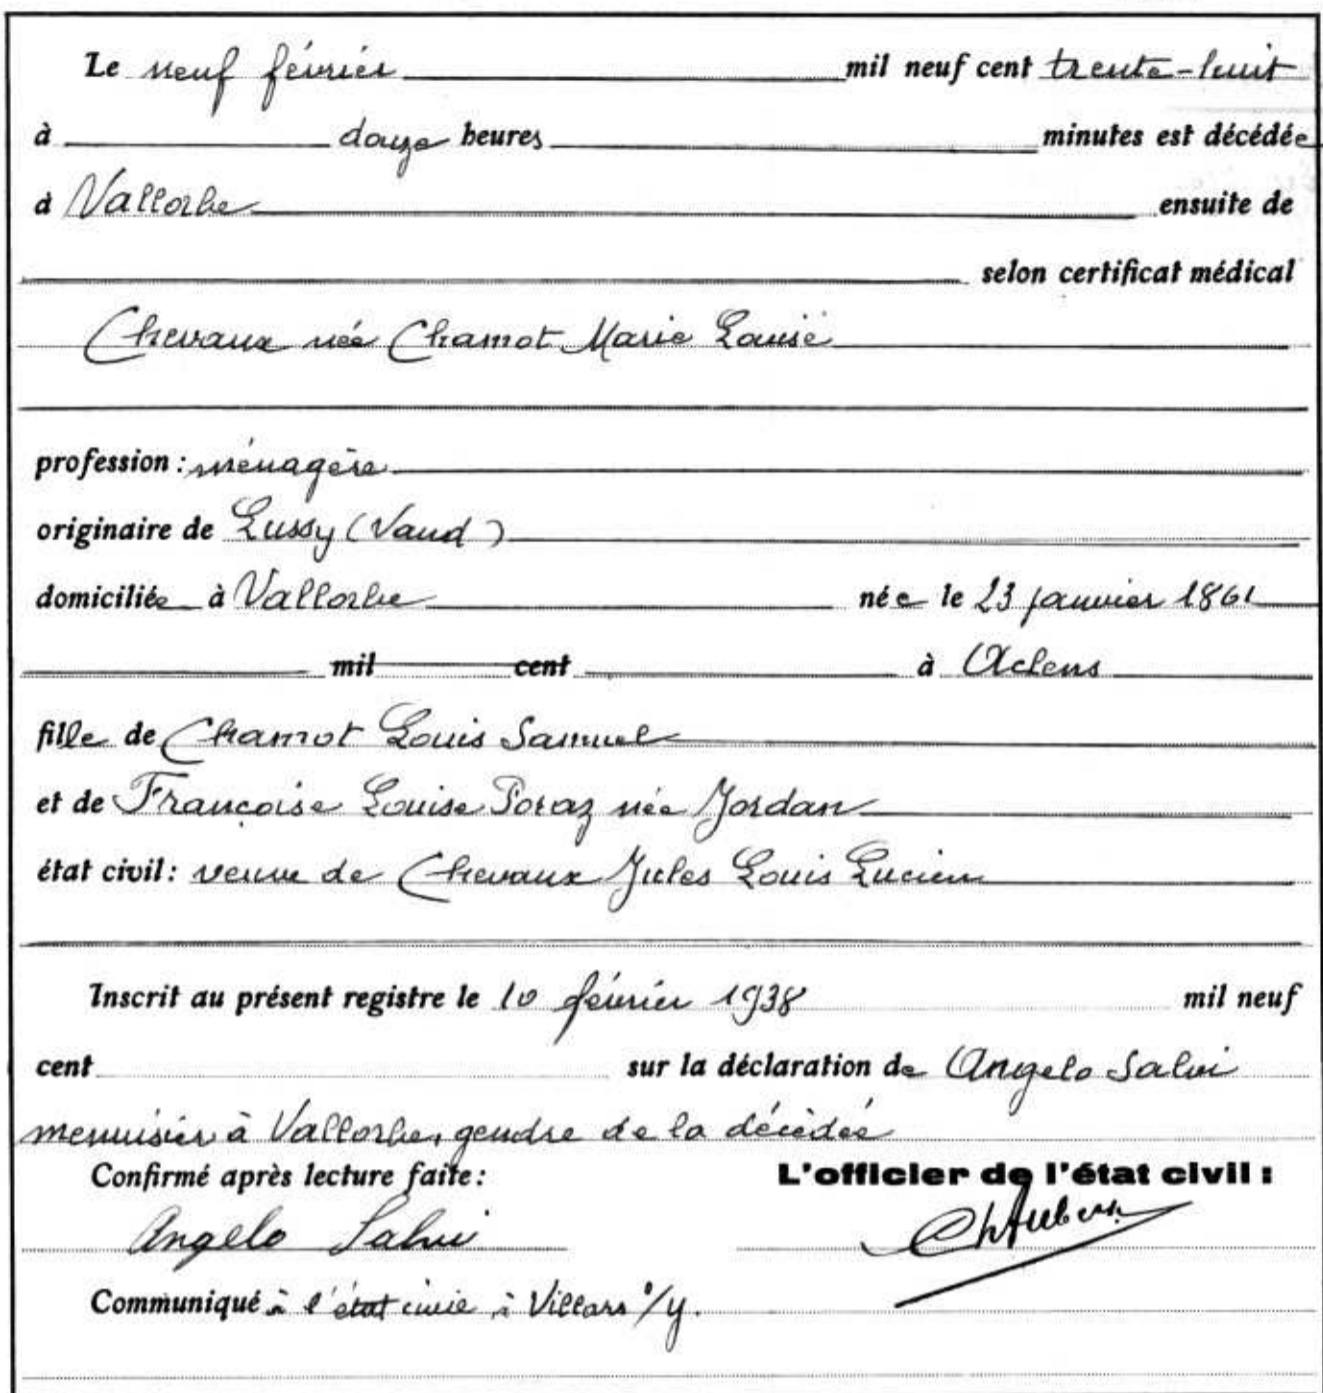 Le neuf février mil neuf cent trente-huit
à douze heures minutes est décédée
à Vallorbe ensuite de
selon certificat médical
Chevaux née Chamot Marie Louise
profession : ménagère
originaire de Lussy (Vaud)
domiciliée à Vallorbe née le 23 janvier 1861
mil cent à Aclens
fille de Chamot Louis Samuel
et de Françoise Louise Poraz née Jordan
état civil : veuve de Chevaux Jules Louis Lucien
Inscrit au présent registre le 10 février 1938 mil neuf
cent sur la déclaration de Angelo Salvi
menuisier à Vallorbe, gendre de la décédée
Confirmé après lecture faite : L'officier de l'état civil :
Angelo Salvi
Communiqué à l'état civil à Villars s/y.